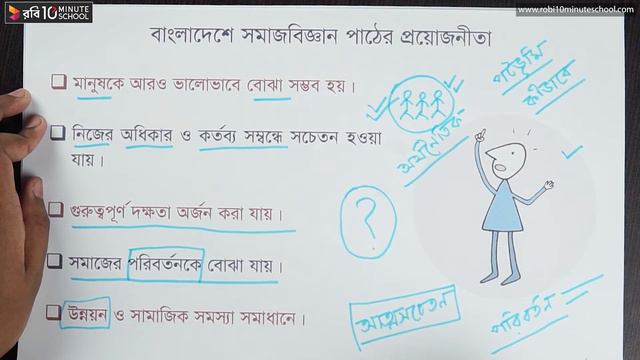 রবি 10 MINUTE SCHOOL
www.robi10minuteschool.com
বাংলাদেশে সমাজবিজ্ঞান পাঠের প্রয়োজনীতা
মানুষকে আরও ভালোভাবে বোঝা সম্ভব হয়।
নিজের অধিকার ও কর্তব্য সম্বন্ধে সচেতন হওয়া
যায়।
গুরুত্বপূর্ণ দক্ষতা অর্জন করা যায়।
সমাজের পরিবর্তনকে বোঝা যায়।
উন্নয়ন ও সামাজিক সমস্যা সমাধানে।
পটভূমি
কীভাবে
অর্থনৈতিক
?
আত্মসচেতন
পরিবর্তন